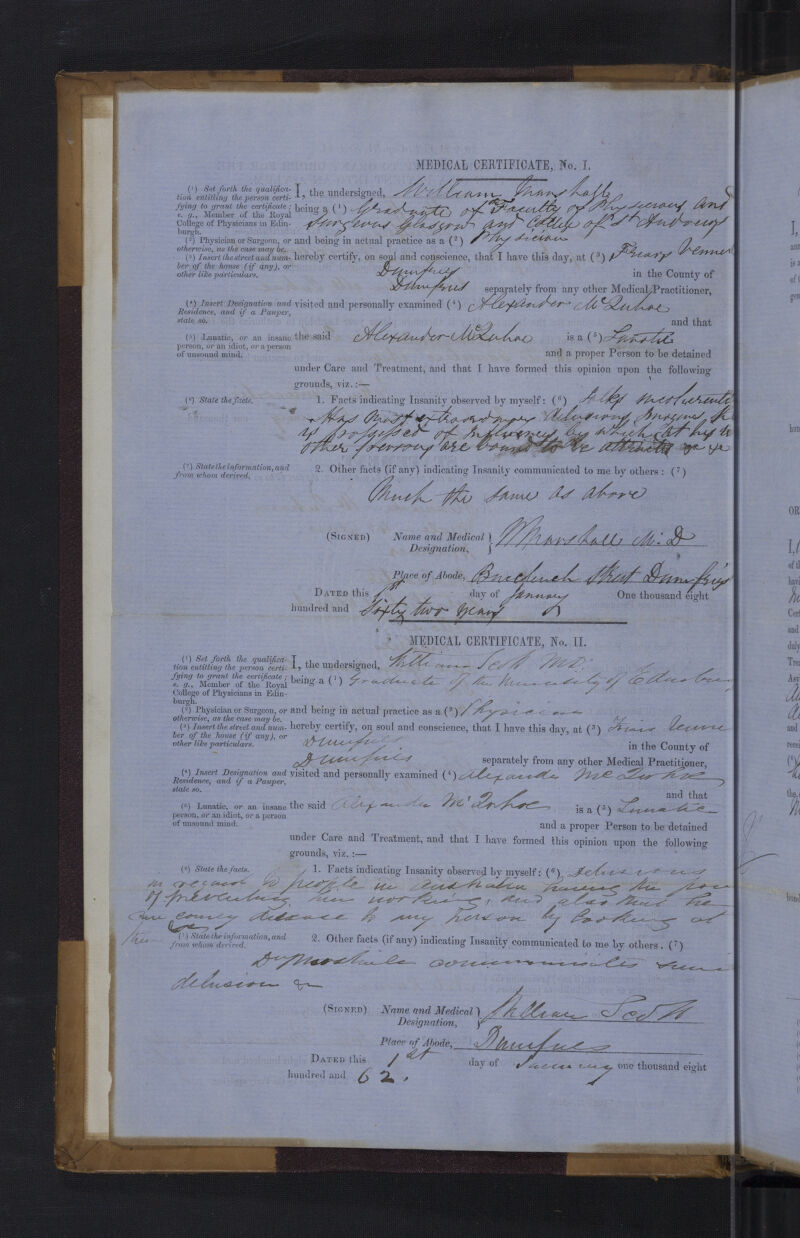 MEDICAL CERTIFICATE, No. I.
(¹) Set forth the qualifica-
tion entitling the person certi-
fying to grant the certificate;
e. g., Member of the Royal
College of Physicians in Edin-
burgh.
I, the undersigned, William Marshall
being a (¹) Graduate of Faculty of Physicians and
Surgeons Glasgow and College of St Andrews
(²) Physician or Surgeon, or
otherwise, as the case may be.
and being in actual practice as a (²) Physician
(³) Insert the street and num-
ber of the house (if any), or
other like particulars.
hereby certify, on soul and conscience, that I have this day, at (³) Friars Vennel
Dumfries in the County of
Dumfries separately from any other Medical Practitioner,
(⁴) Insert Designation and
Residence, and if a Pauper,
state so.
visited and personally examined (⁴) Alexander McQuhae
and that
(⁵) Lunatic, or an insane
person, or an idiot, or a person
of unsound mind.
the said Alexander McQuhae is a (⁵) Lunatic
and a proper Person to be detained
under Care and Treatment, and that I have formed this opinion upon the following
grounds, viz. :—
(⁶) State the facts.
1. Facts indicating Insanity observed by myself: (⁶) Talks incoherently
Has most extraordinary delusions,
is possessed of by which
other persons are bound to be
(⁷) State the information, and
from whom derived.
2. Other facts (if any) indicating Insanity communicated to me by others: (⁷)
Much the same as above
(SIGNED) Name and Medical
Designation, W Marshall M.D
Place of Abode, Buccleuch Street Dumfries
DATED this 1st day of January One thousand eight
hundred and Sixty two years
MEDICAL CERTIFICATE, No. II.
(¹) Set forth the qualifica-
tion entitling the person certi-
fying to grant the certificate;
e. g., Member of the Royal
College of Physicians in Edin-
burgh.
I, the undersigned, William Scott MD.
being a (¹) Graduate of the University of Edinburgh
(²) Physician or Surgeon, or
otherwise, as the case may be.
and being in actual practice as a (²) Physician
(³) Insert the street and num-
ber of the house (if any), or
other like particulars.
hereby certify, on soul and conscience, that I have this day, at (³) Friars Vennel
Dumfries in the County of
Dumfries separately from any other Medical Practitioner,
(⁴) Insert Designation and
Residence, and if a Pauper,
state so.
visited and personally examined (⁴) Alexander McQuhae
and that
(⁵) Lunatic, or an insane
person, or an idiot, or a person
of unsound mind.
the said Alexander McQuhae is a (⁵) Lunatic
and a proper Person to be detained
under Care and Treatment, and that I have formed this opinion upon the following
grounds, viz. :—
(⁶) State the facts.
1. Facts indicating Insanity observed by myself: (⁶) Delusions
in regard to people in Australia having the power
of preventing him working, and also that he
can convey disease to any person by looking at
them
(⁷) State the information, and
from whom derived.
2. Other facts (if any) indicating Insanity communicated to me by others. (⁷)
Dr Marshall communicates same
delusion &c
(SIGNED) Name and Medical
Designation, William Scott
Place of Abode, Dumfries
DATED this 1st day of January one thousand eight
hundred and 62.